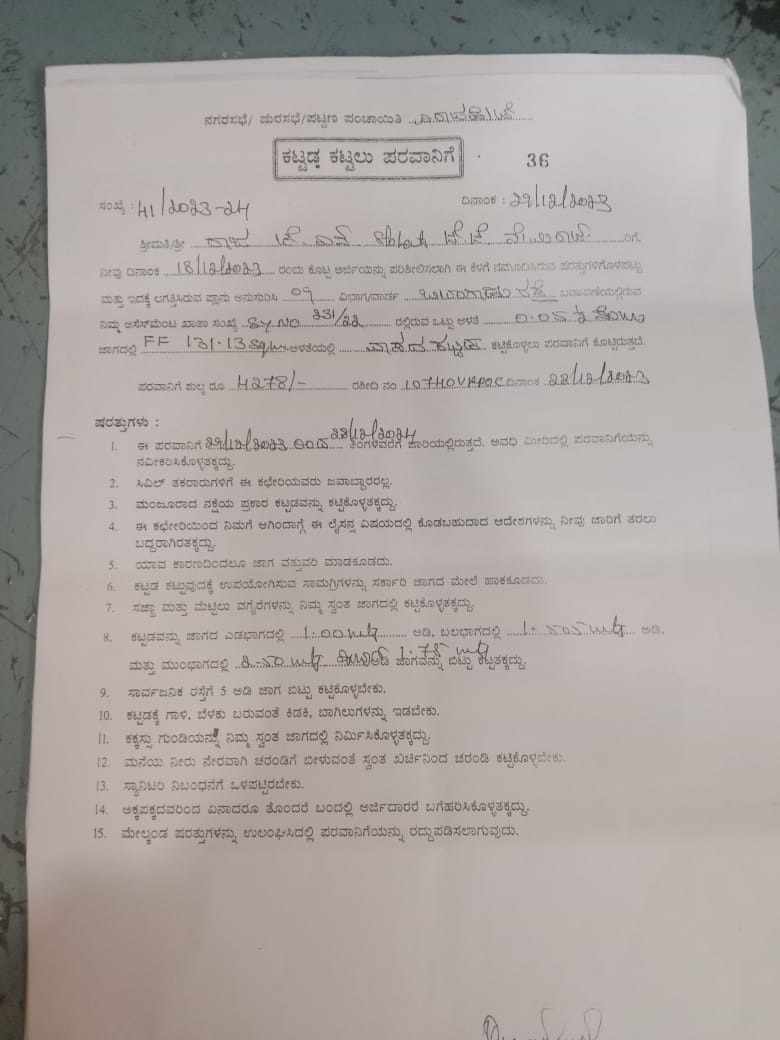 ನಗರಸಭೆ/ ಪುರಸಭೆ/ಪಟ್ಟಣ ಪಂಚಾಯಿತಿ
ಕಟ್ಟಡ ಕಟ್ಟಲು ಪರವಾನಿಗೆ
36
ಸಂಖ್ಯೆ : 41/2023-24 ದಿನಾಂಕ : 29/12/2023
ಶ್ರೀಮತಿ/ಶ್ರೀ ರಾಜ ಗೆ.
ನೀವು ದಿನಾಂಕ 18/12/2023 ರಂದು ಕೊಟ್ಟ ಅರ್ಜಿಯನ್ನು ಪರಿಶೀಲಿಸಲಾಗಿ ಈ ಕೆಳಗೆ ನಮೂದಿಸಿರುವ ಪರತ್ತುಗಳಿಗೊಳಪಟ್ಟು
ಮತ್ತು ಇದಕ್ಕೆ ಲಗತ್ತಿಸಿರುವ ಪ್ಲಾನು ಅನುಸರಿಸಿ 09 ವಿಭಾಗ/ವಾರ್ಡ ಬಡಾವಣೆಯಲ್ಲಿರುವ
ನಿಮ್ಮ ಅಸೆಸ್‌ಮೆಂಟ ಖಾತಾ ಸಂಖ್ಯೆ Sy No 231/22 ರಲ್ಲಿರುವ ಒಟ್ಟು ಅಳತೆ
ಜಾಗದಲ್ಲಿ FF 131.13 Sqm ಅಳತೆಯಲ್ಲಿ ವಾಸದ ಕಟ್ಟಡ ಕಟ್ಟಿಕೊಳ್ಳಲು ಪರವಾನಿಗೆ ಕೊಟ್ಟಿರುತ್ತದೆ.
ಪರವಾನಿಗೆ ಶುಲ್ಕ ರೂ 4278/- ರಶೀದಿ ನಂ ದಿನಾಂಕ 28/12/2023
ಷರತ್ತುಗಳು :
1. ಈ ಪರವಾನಿಗೆ 29/12/2023 ರಿಂದ 28/12/2024 ತಿಂಗಳವರೆಗೆ ಜಾರಿಯಲ್ಲಿರುತ್ತದೆ. ಅವಧಿ ಮೀರಿದಲ್ಲಿ ಪರವಾನಿಗೆಯನ್ನು
ನವೀಕರಿಸಿಕೊಳ್ಳತಕ್ಕದ್ದು.
2. ಸಿವಿಲ್ ತಕರಾರುಗಳಿಗೆ ಈ ಕಛೇರಿಯವರು ಜವಾಬ್ದಾರರಲ್ಲ.
3. ಮಂಜೂರಾದ ನಕ್ಷೆಯ ಪ್ರಕಾರ ಕಟ್ಟಡವನ್ನು ಕಟ್ಟಿಕೊಳ್ಳತಕ್ಕದ್ದು.
4. ಈ ಕಛೇರಿಯಿಂದ ನಿಮಗೆ ಆಗಿಂದಾಗ್ಗೆ ಈ ಲೈಸನ್ಸ ವಿಷಯದಲ್ಲಿ ಕೊಡಬಹುದಾದ ಆದೇಶಗಳನ್ನು ನೀವು ಜಾರಿಗೆ ತರಲು
ಬದ್ದರಾಗಿರತಕ್ಕದ್ದು.
5. ಯಾವ ಕಾರಣದಿಂದಲೂ ಜಾಗ ವತ್ತುವರಿ ಮಾಡಕೂಡದು.
6. ಕಟ್ಟಡ ಕಟ್ಟುವುದಕ್ಕೆ ಉಪಯೋಗಿಸುವ ಸಾಮಗ್ರಿಗಳನ್ನು ಸರ್ಕಾರಿ ಜಾಗದ ಮೇಲೆ ಹಾಕಕೂಡದು.
7. ಸಜ್ಜಾ ಮತ್ತು ಮೆಟ್ಟಿಲು ವಗೈರೆಗಳನ್ನು ನಿಮ್ಮ ಸ್ವಂತ ಜಾಗದಲ್ಲಿ ಕಟ್ಟಿಕೊಳ್ಳತಕ್ಕದ್ದು.
8. ಕಟ್ಟಡವನ್ನು ಜಾಗದ ಎಡಭಾಗದಲ್ಲಿ 1.00 ಅಡಿ, ಬಲಭಾಗದಲ್ಲಿ ಅಡಿ,
ಮತ್ತು ಮುಂಭಾಗದಲ್ಲಿ 1.75 ಅಡಿ ಜಾಗವನ್ನು ಬಿಟ್ಟು ಕಟ್ಟತಕ್ಕದ್ದು.
9. ಸಾರ್ವಜನಿಕ ರಸ್ತೆಗೆ 5 ಅಡಿ ಜಾಗ ಬಿಟ್ಟು ಕಟ್ಟಿಕೊಳ್ಳಬೇಕು.
10. ಕಟ್ಟಡಕ್ಕೆ ಗಾಳಿ, ಬೆಳಕು ಬರುವಂತೆ ಕಿಡಕಿ, ಬಾಗಿಲುಗಳನ್ನು ಇಡಬೇಕು.
11. ಕಕ್ಕಸ್ಸು ಗುಂಡಿಯನ್ನು ನಿಮ್ಮ ಸ್ವಂತ ಜಾಗದಲ್ಲಿ ನಿರ್ಮಿಸಿಕೊಳ್ಳತಕ್ಕದ್ದು.
12. ಮನೆಯ ನೀರು ನೇರವಾಗಿ ಚರಂಡಿಗೆ ಬೀಳುವಂತೆ ಸ್ವಂತ ಖರ್ಚಿನಿಂದ ಚರಂಡಿ ಕಟ್ಟಿಕೊಳ್ಳಬೇಕು.
13. ಸ್ಯಾನಿಟರಿ ನಿಬಂಧನೆಗೆ ಒಳಪಟ್ಟಿರಬೇಕು.
14. ಅಕ್ಕಪಕ್ಕದವರಿಂದ ಏನಾದರೂ ತೊಂದರೆ ಬಂದಲ್ಲಿ ಅರ್ಜಿದಾರರೆ ಬಗೆಹರಿಸಿಕೊಳ್ಳತಕ್ಕದ್ದು.
15. ಮೇಲ್ಕಂಡ ಷರತ್ತುಗಳನ್ನು ಉಲಂಘಿಸಿದಲ್ಲಿ ಪರವಾನಿಗೆಯನ್ನು ರದ್ದುಪಡಿಸಲಾಗುವುದು.